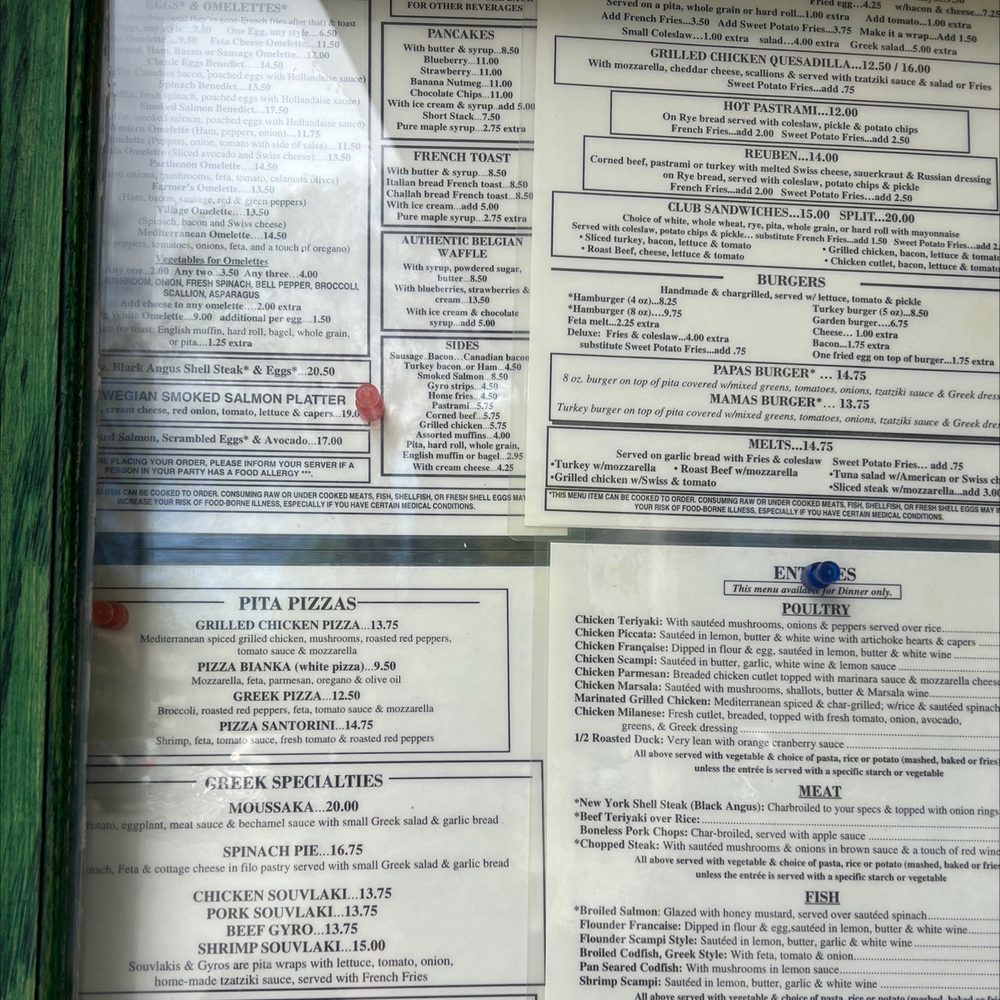 EGGS* & OMELETTES*
(until they're gone-French fries after that) & toast
One Egg, any style...6.50
Feta Cheese Omelette...11.50
Ham, Bacon or Sausage Omelette...12.00
Classic Eggs Benedict....14.50
Canadian bacon, poached eggs with Hollandaise sauce)
Spinach Benedict...13.50
fresh spinach, poached eggs with Hollandaise sauce)
Smoked Salmon Benedict...17.50
smoked salmon, poached eggs with Hollandaise sauce)
Omelette (Ham, peppers, onion)...11.75
Omelette (Peppers, onion, tomato with side of salsa)...11.50
Omelette (Sliced avocado and Swiss cheese)...13.50
Parthenon Omelette....14.50
onions, mushrooms, feta, tomato, calamata olives)
Farmer's Omelette...13.50
(Ham, bacon, sausage, red & green peppers)
Village Omelette....13.50
(Spinach, bacon and Swiss cheese)
Mediterranean Omelette....14.50
peppers, tomatoes, onions, feta, and a touch of oregano)
Vegetables for Omelettes
Any one...2.00 Any two...3.50 Any three...4.00
MUSHROOM, ONION, FRESH SPINACH, BELL PEPPER, BROCCOLI,
SCALLION, ASPARAGUS
Add cheese to any omelette....2.00 extra
White Omelette...9.00 additional per egg....1.50
for toast: English muffin, hard roll, bagel, whole grain,
or pita....1.25 extra
Black Angus Shell Steak* & Eggs*...20.50
WEGIAN SMOKED SALMON PLATTER
cream cheese, red onion, tomato, lettuce & capers...19.0
Salmon, Scrambled Eggs* & Avocado...17.00
RE PLACING YOUR ORDER, PLEASE INFORM YOUR SERVER IF A
PERSON IN YOUR PARTY HAS A FOOD ALLERGY ***.
ITEM CAN BE COOKED TO ORDER. CONSUMING RAW OR UNDER COOKED MEATS, FISH, SHELLFISH, OR FRESH SHELL EGGS MAY
INCREASE YOUR RISK OF FOOD-BORNE ILLNESS, ESPECIALLY IF YOU HAVE CERTAIN MEDICAL CONDITIONS.
FOR OTHER BEVERAGES
PANCAKES
With butter & syrup...8.50
Blueberry...11.00
Strawberry...11.00
Banana Nutmeg...11.00
Chocolate Chips...11.00
With ice cream & syrup..add 5.00
Short Stack...7.50
Pure maple syrup...2.75 extra
FRENCH TOAST
With butter & syrup....8.50
Italian bread French toast...8.50
Challah bread French toast...8.50
With ice cream...add 5.00
Pure maple syrup...2.75 extra
AUTHENTIC BELGIAN
WAFFLE
With syrup, powdered sugar,
butter...8.50
With blueberries, strawberries &
cream...13.50
With ice cream & chocolate
syrup...add 5.00
SIDES
Sausage..Bacon...Canadian bacon
Turkey bacon..or Ham...4.50
Smoked Salmon...8.50
Gyro strips...4.50
Home fries...4.50
Pastrami...5.75
Corned beef...5.75
Grilled chicken...5.75
Assorted muffins...4.00
Pita, hard roll, whole grain,
English muffin or bagel...2.95
With cream cheese...4.25
Served on a pita, whole grain or hard roll...1.00 extra Fried egg...4.25 w/bacon & cheese...7.25
Add French Fries...3.50 Add Sweet Potato Fries...3.75 Add tomato...1.00 extra
Small Coleslaw...1.00 extra salad...4.00 extra Make it a wrap...Add 1.50
Greek salad...5.00 extra
GRILLED CHICKEN QUESADILLA...12.50 / 16.00
With mozzarella, cheddar cheese, scallions & served with tzatziki sauce & salad or Fries
Sweet Potato Fries...add .75
HOT PASTRAMI...12.00
On Rye bread served with coleslaw, pickle & potato chips
French Fries...add 2.00 Sweet Potato Fries...add 2.50
REUBEN...14.00
Corned beef, pastrami or turkey with melted Swiss cheese, sauerkraut & Russian dressing
on Rye bread, served with coleslaw, potato chips & pickle
French Fries...add 2.00 Sweet Potato Fries...add 2.50
CLUB SANDWICHES...15.00 SPLIT...20.00
Choice of white, whole wheat, rye, pita, whole grain, or hard roll with mayonnaise
Served with coleslaw, potato chips & pickle... substitute French Fries...add 1.50 Sweet Potato Fries...add 2.
• Sliced turkey, bacon, lettuce & tomato • Grilled chicken, bacon, lettuce & tomato
• Roast Beef, cheese, lettuce & tomato • Chicken cutlet, bacon, lettuce & tomato
BURGERS
Handmade & chargrilled, served w/ lettuce, tomato & pickle
*Hamburger (4 oz)...8.25 Turkey burger (5 oz)...8.50
*Hamburger (8 oz)....9.75 Garden burger....6.75
Feta melt...2.25 extra Cheese... 1.00 extra
Deluxe: Fries & coleslaw...4.00 extra Bacon...1.75 extra
substitute Sweet Potato Fries...add .75 One fried egg on top of burger...1.75 extra
PAPAS BURGER* ... 14.75
8 oz. burger on top of pita covered w/mixed greens, tomatoes, onions, tzatziki sauce & Greek dress
MAMAS BURGER*... 13.75
Turkey burger on top of pita covered w/mixed greens, tomatoes, onions, tzatziki sauce & Greek dres
MELTS...14.75
Served on garlic bread with Fries & coleslaw Sweet Potato Fries... add .75
•Turkey w/mozzarella • Roast Beef w/mozzarella •Tuna salad w/American or Swiss ch
•Grilled chicken w/Swiss & tomato •Sliced steak w/mozzarella...add 3.00
*THIS MENU ITEM CAN BE COOKED TO ORDER. CONSUMING RAW OR UNDER COOKED MEATS, FISH, SHELLFISH, OR FRESH SHELL EGGS MAY IN
YOUR RISK OF FOOD-BORNE ILLNESS, ESPECIALLY IF YOU HAVE CERTAIN MEDICAL CONDITIONS.
PITA PIZZAS
GRILLED CHICKEN PIZZA...13.75
Mediterranean spiced grilled chicken, mushrooms, roasted red peppers,
tomato sauce & mozzarella
PIZZA BIANKA (white pizza)...9.50
Mozzarella, feta, parmesan, oregano & olive oil
GREEK PIZZA...12.50
Broccoli, roasted red peppers, feta, tomato sauce & mozzarella
PIZZA SANTORINI...14.75
Shrimp, feta, tomato sauce, fresh tomato & roasted red peppers
GREEK SPECIALTIES
MOUSSAKA...20.00
Potato, eggplant, meat sauce & bechamel sauce with small Greek salad & garlic bread
SPINACH PIE...16.75
inach, Feta & cottage cheese in filo pastry served with small Greek salad & garlic bread
CHICKEN SOUVLAKI...13.75
PORK SOUVLAKI...13.75
BEEF GYRO...13.75
SHRIMP SOUVLAKI...15.00
Souvlakis & Gyros are pita wraps with lettuce, tomato, onion,
home-made tzatziki sauce, served with French Fries
ENT ES
This menu available for Dinner only.
POULTRY
Chicken Teriyaki: With sautéed mushrooms, onions & peppers served over rice
Chicken Piccata: Sautéed in lemon, butter & white wine with artichoke hearts & capers
Chicken Française: Dipped in flour & egg, sautéed in lemon, butter & white wine
Chicken Scampi: Sautéed in butter, garlic, white wine & lemon sauce
Chicken Parmesan: Breaded chicken cutlet topped with marinara sauce & mozzarella cheese
Chicken Marsala: Sautéed with mushrooms, shallots, butter & Marsala wine
Marinated Grilled Chicken: Mediterranean spiced & char-grilled; w/rice & sautéed spinach
Chicken Milanese: Fresh cutlet, breaded, topped with fresh tomato, onion, avocado,
greens, & Greek dressing
1/2 Roasted Duck: Very lean with orange cranberry sauce
All above served with vegetable & choice of pasta, rice or potato (mashed, baked or fries)
unless the entrée is served with a specific starch or vegetable
MEAT
*New York Shell Steak (Black Angus): Charbroiled to your specs & topped with onion rings
*Beef Teriyaki over Rice:
Boneless Pork Chops: Char-broiled, served with apple sauce
*Chopped Steak: With sautéed mushrooms & onions in brown sauce & a touch of red wine
All above served with vegetable & choice of pasta, rice or potato (mashed, baked or fries
unless the entrée is served with a specific starch or vegetable
FISH
*Broiled Salmon: Glazed with honey mustard, served over sautéed spinach
Flounder Francaise: Dipped in flour & egg,sautéed in lemon, butter & white wine
Flounder Scampi Style: Sautéed in lemon, butter, garlic & white wine
Broiled Codfish, Greek Style: With feta, tomato & onion
Pan Seared Codfish: With mushrooms in lemon sauce
Shrimp Scampi: Sautéed in lemon, butter, garlic & white wine
All above served with vegetable & choice of pasta, rice or potato (mashed, baked or